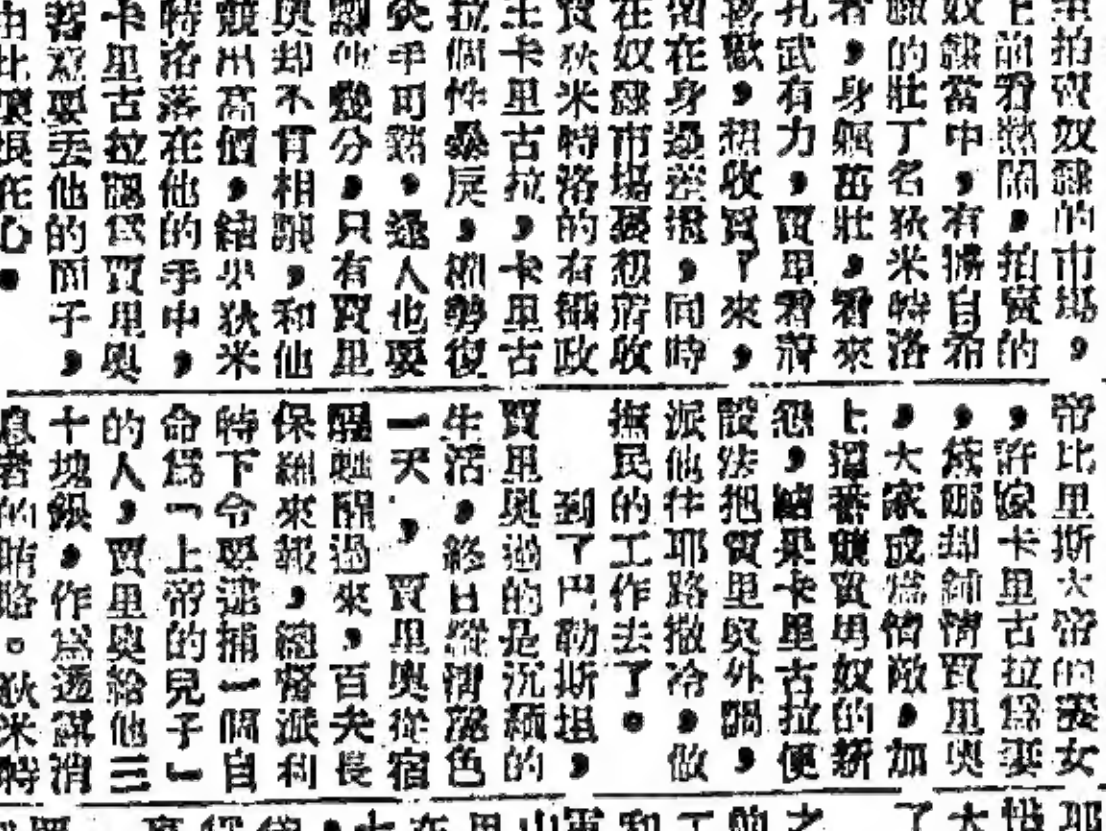 來拍賣奴隸的市場，
上前看熱鬧，拍賣的
奴隸當中，有擄自希
臘的壯丁名狄米特洛
者，身軀茁壯，看來
孔武有力，賈里看將
喜歡，想收買了來，
在身邊差撥，同時
在奴隸市場裏想府收
買狄米特洛的有攝政
王卡里古拉，卡里古
拉個性暴戾，權勢復
炙手可熱，過人也要
讓他幾分，只有賈里
奧却不肯相讓，和他
競出高價，結果狄米
特洛落在他的手中，
卡里古拉認為賈里奧
蓄意要丟他的面子，
由此懷恨在心。
帝比里斯大帝的養女
，許嫁卡里古拉為妻
，嫁娜却鍾情賈里奧
，大家成為情敵，加
上這番競買男奴的新
怨，結果卡里古拉便
設法把賈里奧外調，
派他往耶路撒冷，做
撫民的工作去了。
到了巴勒斯坦，
賈里奧過的是沉緬的
生活，終日縱情酒色
一天，賈里奧從宿
醒甦醒過來，百夫長
保羅來報，總督派利
時下令要逮捕一個自
命為「上帝的兒子」
的人，賈里奧給他三
十塊銀，作為透謀消
息者的賄賂。狄米特